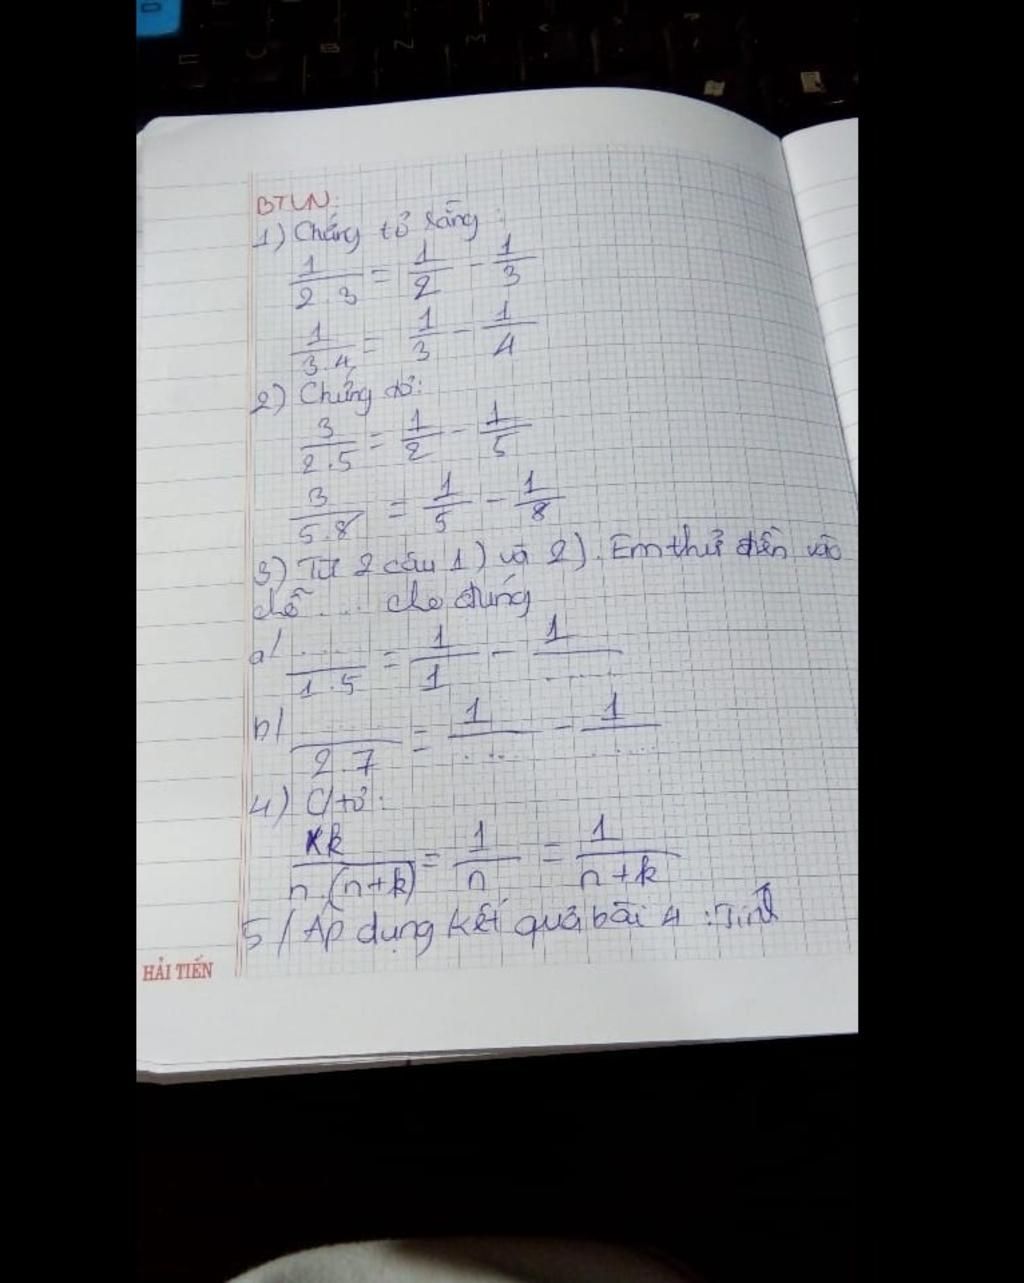 BTVN:
1) Chứng tỏ rằng:
1/2.3 = 1/2 - 1/3
1/3.4 = 1/3 - 1/4
2) Chứng tỏ:
3/2.5 = 1/2 - 1/5
3/5.8 = 1/5 - 1/8
3) Từ 2 câu 1) và 2). Em thử điền vào
chỗ .... cho đúng
a/ ..../1.5 = 1/1 - 1/.....
b/ ..../2.7 = 1/..... - 1/.....
4) C/tỏ:
k/n.(n+k) = 1/n = 1/n+k
5/ Áp dụng kết quả bài 4: Tính
HẢI TIẾN